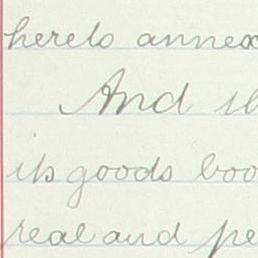 hereto annex
And it
its goods boo
real and pe